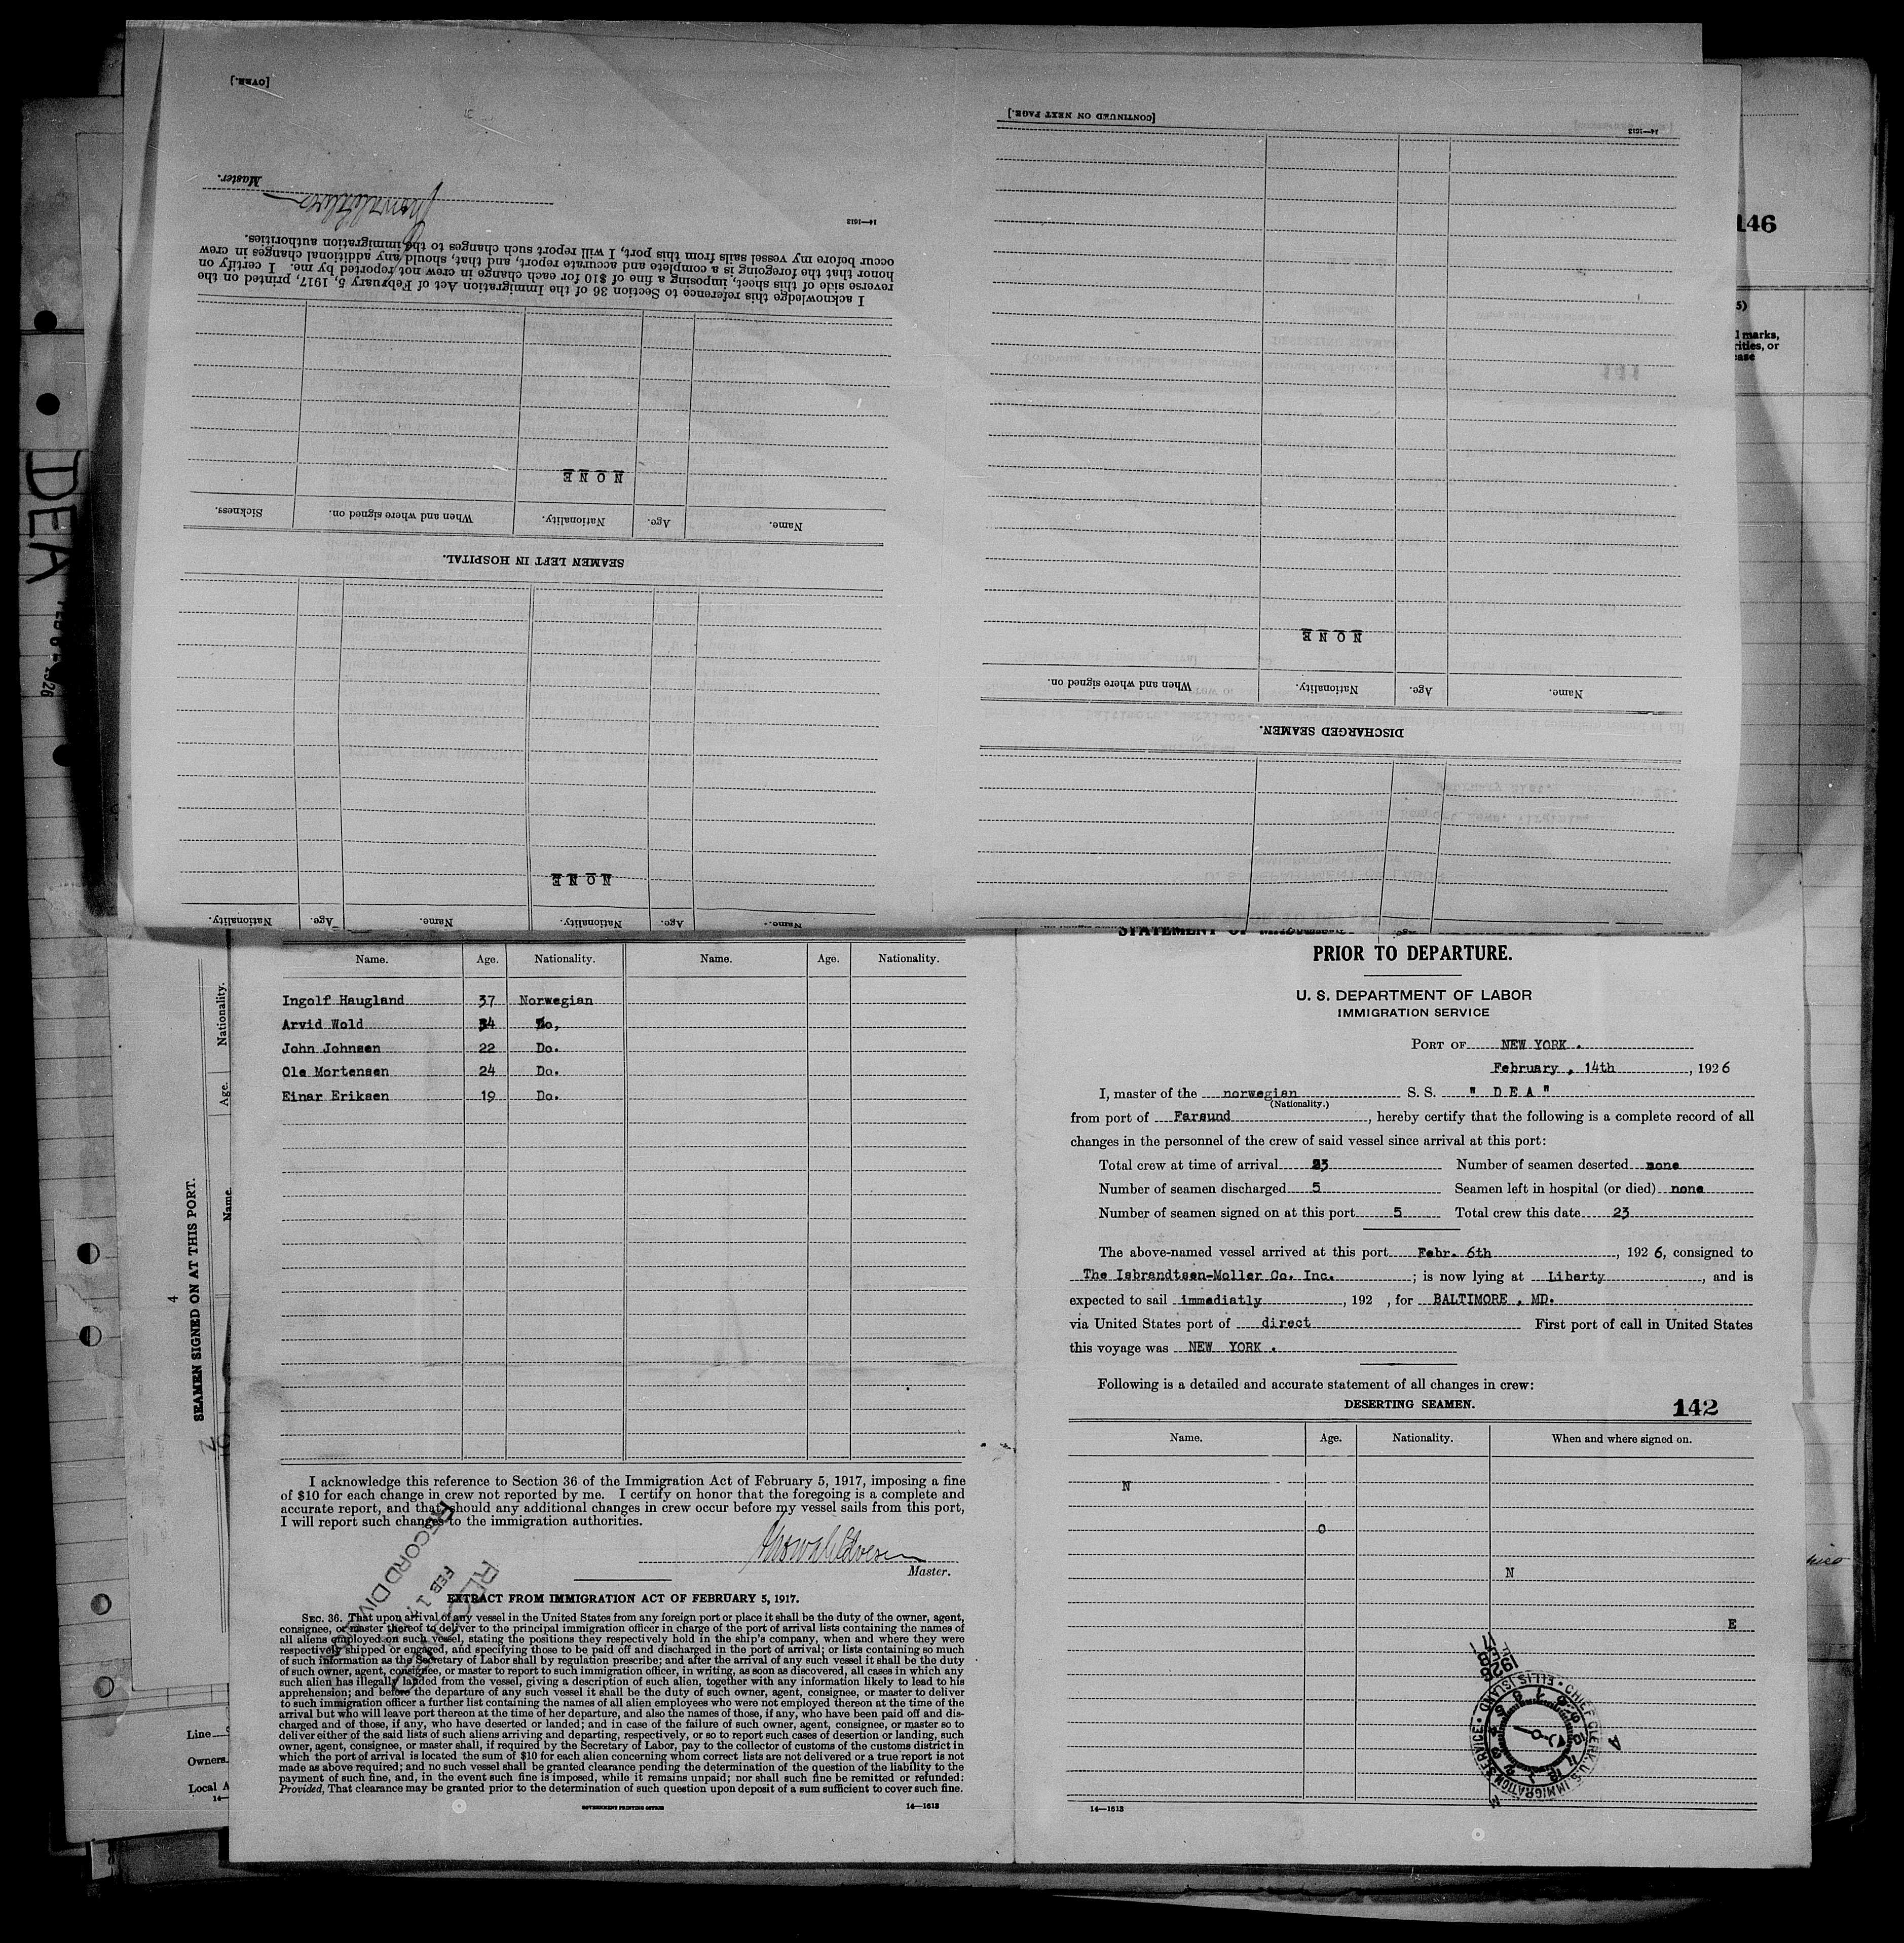 [OVER.]
Master.
14—1613
I acknowledge this reference to Section 36 of the Immigration Act of February 5, 1917, printed on the
reverse side of this sheet, imposing a fine of $10 for each change in crew not reported by me. I certify on
honor that the foregoing is a complete and accurate report, and that, should any additional changes in crew
occur before my vessel sails from this port, I will report such changes to the immigration authorities.
NONE
Name. Age. Nationality. When and where signed on. Sickness.
SEAMEN LEFT IN HOSPITAL.
NONE
Name. Age. Nationality. Name. Age. Nationality.
[CONTINUED ON NEXT PAGE.]
14—1613
NONE
Name. Age. Nationality. When and where signed on.
DISCHARGED SEAMEN.
146
5)
l marks,
rities, or
ease
DEA
1926
Nationality.
Age.
Name.
4
SEAMEN SIGNED ON AT THIS PORT.
Line
Owners
Local A
14—
Name. Age. Nationality. Name. Age. Nationality.
Ingolf Haugland 37 Norwegian
Arvid Wold 34 Do.
John Johnsen 22 Do.
Ole Mortensen 24 Do.
Einar Eriksen 19 Do.
I acknowledge this reference to Section 36 of the Immigration Act of February 5, 1917, imposing a fine
of $10 for each change in crew not reported by me. I certify on honor that the foregoing is a complete and
accurate report, and that, should any additional changes in crew occur before my vessel sails from this port,
I will report such changes to the immigration authorities.
Master.
RECORD DIVISION
FEB 17
EXTRACT FROM IMMIGRATION ACT OF FEBRUARY 5, 1917.
SEC. 36. That upon arrival of any vessel in the United States from any foreign port or place it shall be the duty of the owner, agent,
consignee, or master thereof to deliver to the principal immigration officer in charge of the port of arrival lists containing the names of
all aliens employed on such vessel, stating the positions they respectively hold in the ship's company, when and where they were
respectively shipped or engaged, and specifying those to be paid off and discharged in the port of arrival; or lists containing so much
of such information as the Secretary of Labor shall by regulation prescribe; and after the arrival of any such vessel it shall be the duty
of such owner, agent, consignee, or master to report to such immigration officer, in writing, as soon as discovered, all cases in which any
such alien has illegally landed from the vessel, giving a description of such alien, together with any information likely to lead to his
apprehension; and before the departure of any such vessel it shall be the duty of such owner, agent, consignee, or master to deliver
to such immigration officer a further list containing the names of all alien employees who were not employed thereon at the time of the
arrival but who will leave port thereon at the time of her departure, and also the names of those, if any, who have been paid off and dis-
charged and of those, if any, who have deserted or landed; and in case of the failure of such owner, agent, consignee, or master so to
deliver either of the said lists of such aliens arriving and departing, respectively, or so to report such cases of desertion or landing, such
owner, agent, consignee, or master shall, if required by the Secretary of Labor, pay to the collector of customs of the customs district in
which the port of arrival is located the sum of $10 for each alien concerning whom correct lists are not delivered or a true report is not
made as above required; and no such vessel shall be granted clearance pending the determination of the question of the liability to the
payment of such fine, and, in the event such fine is imposed, while it remains unpaid; nor shall such fine be remitted or refunded:
Provided, That clearance may be granted prior to the determination of such question upon deposit of a sum sufficient to cover such fine.
GOVERNMENT PRINTING OFFICE 14—1613
STATEMENT OF
PRIOR TO DEPARTURE.
U. S. DEPARTMENT OF LABOR
IMMIGRATION SERVICE
PORT OF NEW YORK .
February , 14th , 1926
I, master of the norwegian S. S. " D E A "
(Nationality.)
from port of Farsund , hereby certify that the following is a complete record of all
changes in the personnel of the crew of said vessel since arrival at this port:
Total crew at time of arrival 23 Number of seamen deserted none
Number of seamen discharged 5 Seamen left in hospital (or died) none
Number of seamen signed on at this port 5 Total crew this date 23
The above-named vessel arrived at this port Febr. 6th , 1926, consigned to
The Isbrandtsen-Moller Co. Inc. ; is now lying at Liberty , and is
expected to sail immediatly , 192 , for BALTIMORE , MD.
via United States port of direct First port of call in United States
this voyage was NEW YORK .
Following is a detailed and accurate statement of all changes in crew:
DESERTING SEAMEN. 142
Name. Age. Nationality. When and where signed on.
N
O
N
E
1926 FEB 17
CHIEF CLERK, U.S. IMMIGRATION SERVICE • ELLIS ISLAND •
14—1613